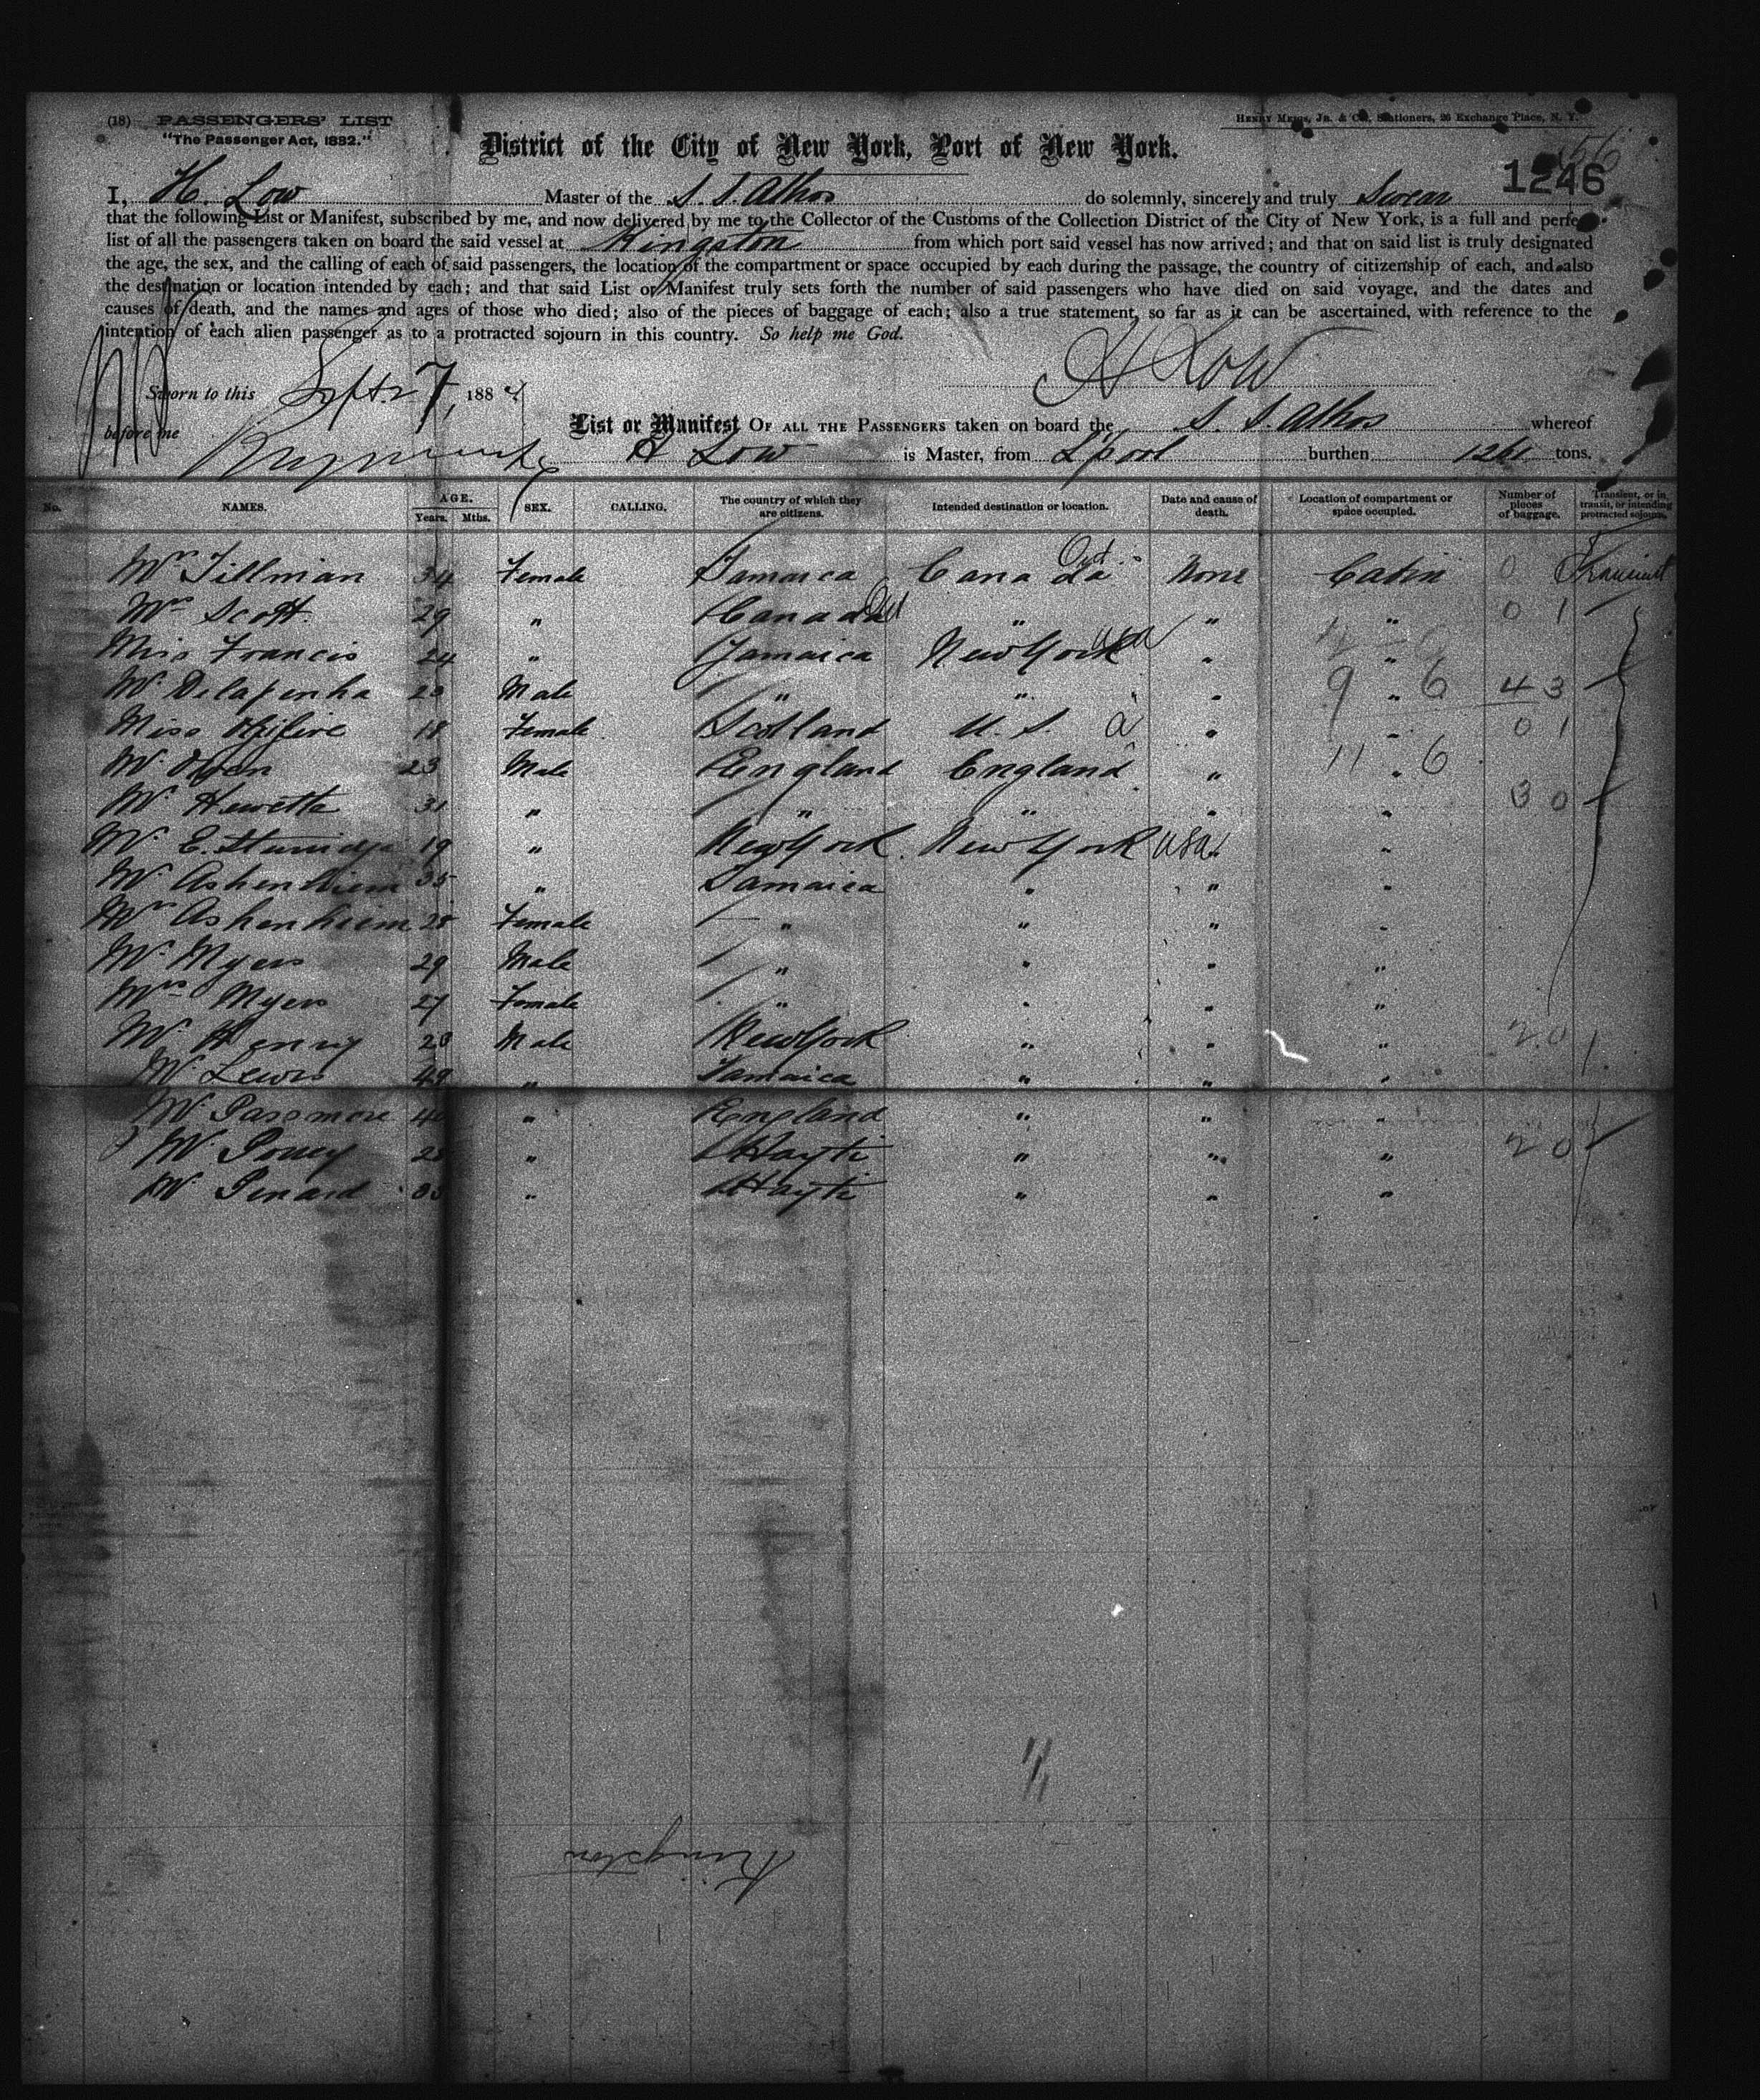 (18) PASSENGERS' LIST
"The Passenger Act, 1882."
HENRY MEIGS, JR. & CO., Stationers, 26 Exchange Place, N. Y.
District of the City of New York, Port of New York.
1246
I, H. Low Master of the S. S. Athos do solemnly, sincerely and truly Swear
that the following List or Manifest, subscribed by me, and now delivered by me to the Collector of the Customs of the Collection District of the City of New York, is a full and perfect
list of all the passengers taken on board the said vessel at Kingston from which port said vessel has now arrived; and that on said list is truly designated
the age, the sex, and the calling of each of said passengers, the location of the compartment or space occupied by each during the passage, the country of citizenship of each, and also
the destination or location intended by each; and that said List or Manifest truly sets forth the number of said passengers who have died on said voyage, and the dates and
causes of death, and the names and ages of those who died; also of the pieces of baggage of each; also a true statement, so far as it can be ascertained, with reference to the
intention of each alien passenger as to a protracted sojourn in this country. So help me God.
H Low
Sworn to this Sept. 27, 188
before me
List or Manifest OF ALL THE PASSENGERS taken on board the S. S. Athos whereof
H Low is Master, from L'pool burthen 1261 tons.
No. NAMES. AGE. Years. Mths. SEX. CALLING. The country of which they are citizens. Intended destination or location. Date and cause of death. Location of compartment or space occupied. Number of pieces of baggage. Transient, or in transit, or intending protracted sojourn.
Mrs Tillman 34 Female Jamaica Canada None Cabin 0 Transient
Mrs Scott 29 " Canada " " " 0 1
Miss Francis 24 " Jamaica New York USA " "
Mr Delapenha 20 Male " " " " 9 6 4 3
Miss 18 Female Scotland U. S. a " " 0 1
Mr 23 Male England England " " 11 6
Mr Hewetta 31 " " " " " 3 0
Mr E. Sturridge 19 " New York New York USA " "
Mr Ashenhiem 35 " Jamaica " " "
Mrs Ashenhiem 28 Female " " " "
Mr Myers 29 Male " " " "
Mrs Myers 27 Female " " " "
Mr Henry 28 Male New York " " " 2 0
Mr Lewis 49 " Jamaica " " "
Mr Passmore " England " " "
Mr " Hayti " " " 2 0
Mr Penard " Hayti " " "
11
Kingston